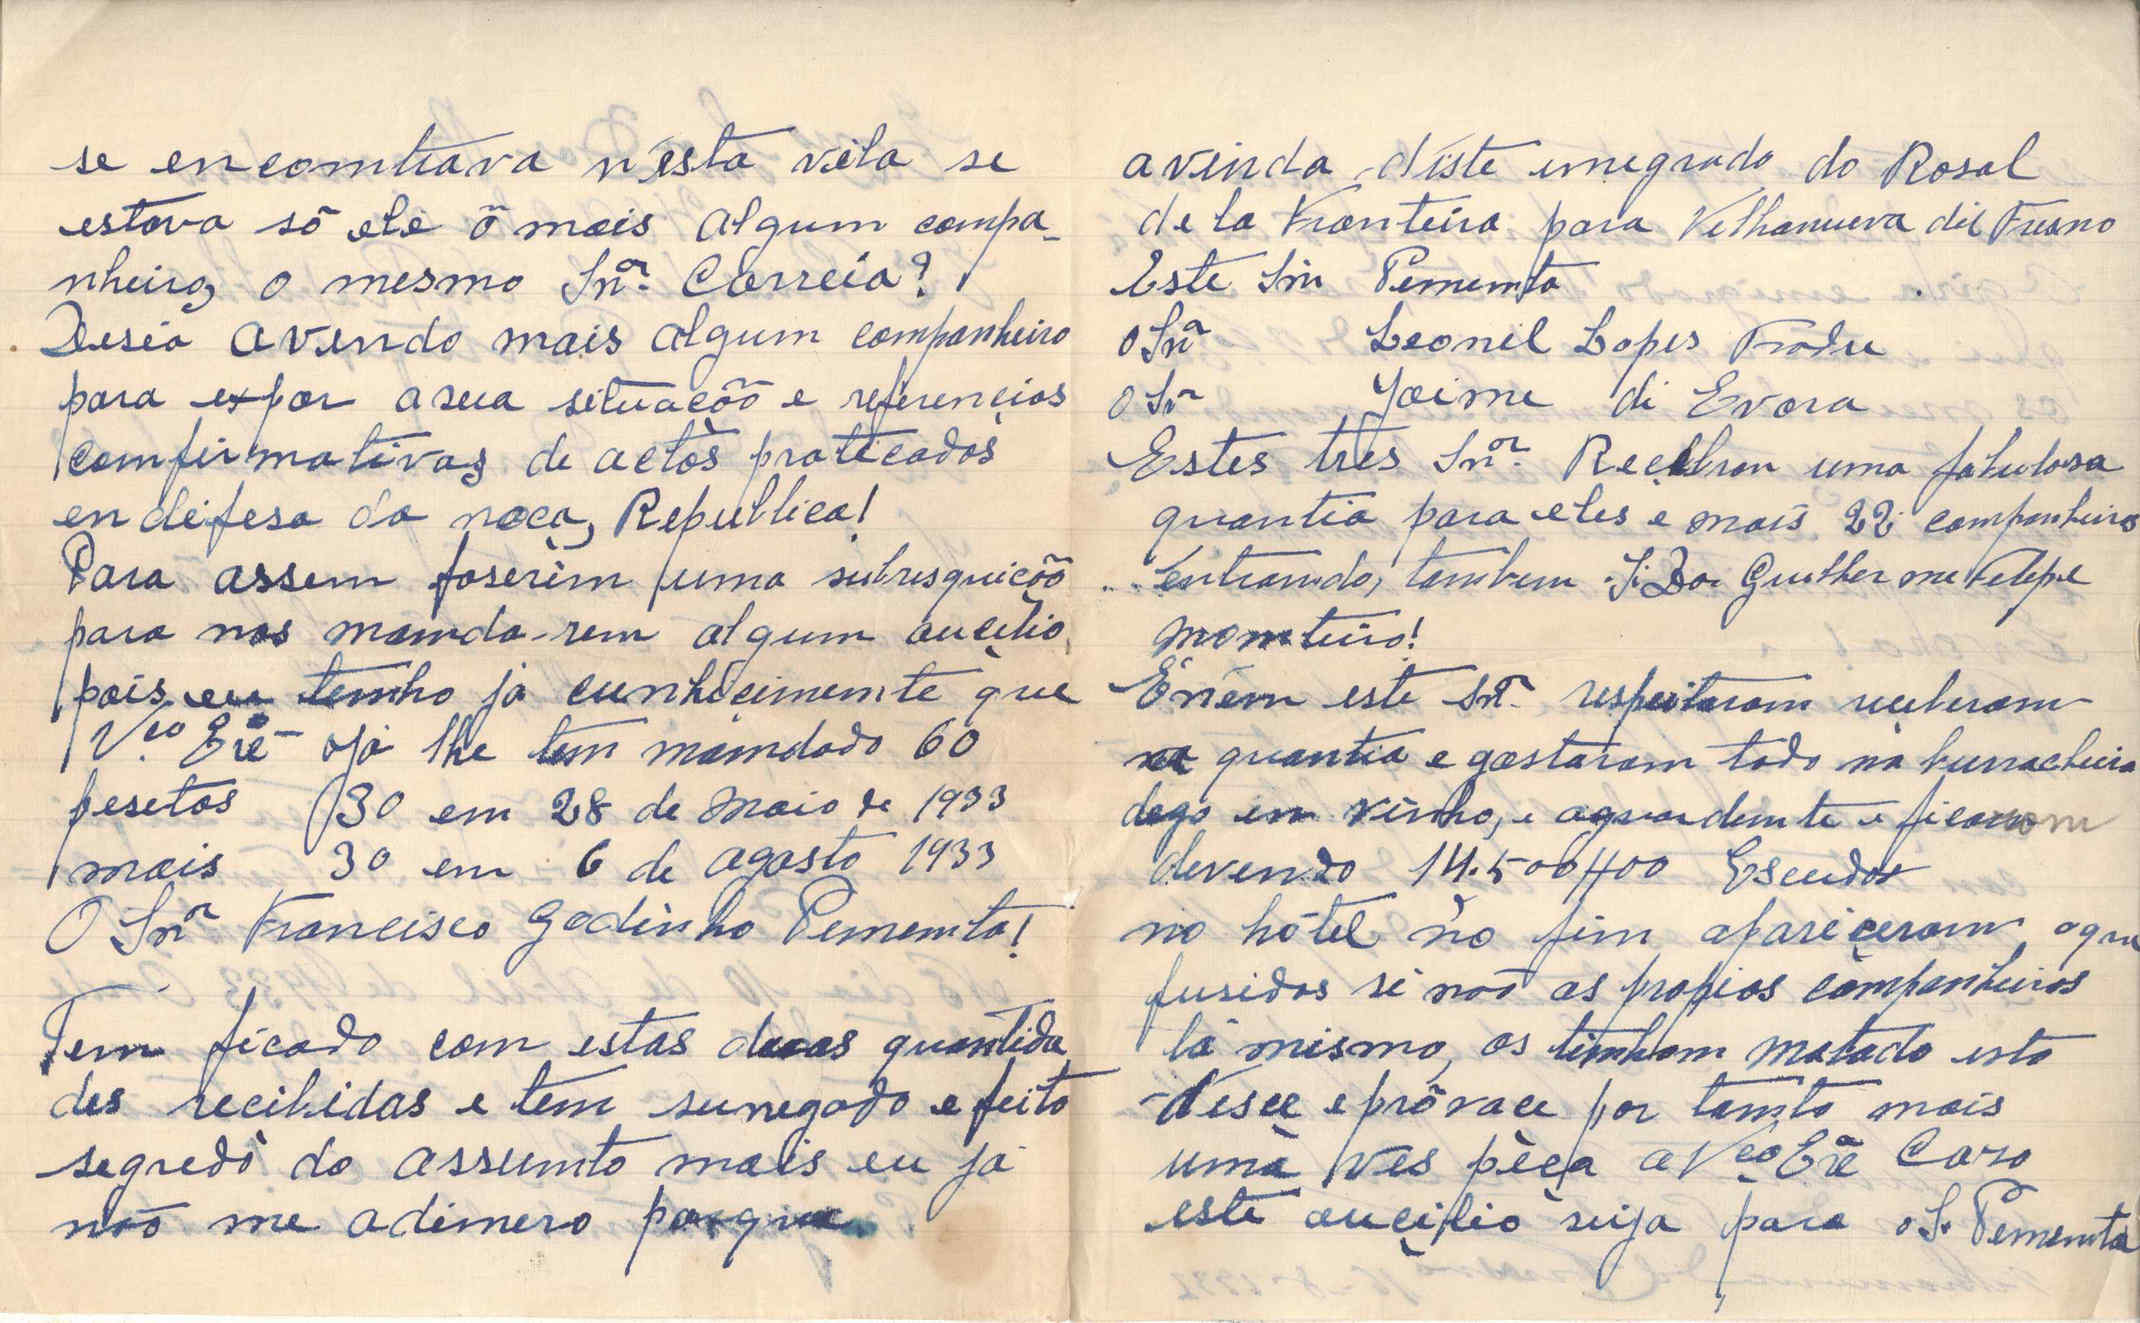 se encomtrava n'esta vila se
estava sô ele ô mais algum compa-
nheiro, o mesmo Snr. Correia?
Deseia avendo mais algum companheiro
para expor a sua situacõo e referencias
comfirmativas de actos praticados
en defesa da noca, Republica!
Para assem faserem uma subresquicõo
para nos manda-rem algum aucilio
pois eu temho já cunhecimemte que
V.cio Exê já lhe tem mamdado 60
pesetas 30 em 28 de Maio de 1933
mais 30 em 6 de agosto 1933
O Snr Francisco Godinho Pememta!
Tem ficado com estas duas quantida
des recibidas e tem sunegado e feito
segredo do assumto mais eu já
não me adimero porque
avinda diste emegrado do Rosal
de la Fronteira para Velhanueva del Fresno
Este Snr Pememta
O Snr Leonel Lopes Frade
O Snr Jaime di Evora
Estes tres Snr. Receberan uma fabulosa
quantia para eles e mais 22 companheiros
entramdo, tambem S. Dor Guilher me Felepe
Momteiro!
E nem este Snr. respeitaram receberam
na quantia e gastaram todo na burracheira
dego en vinho, e aguardemte e ficarom
devendo 14.500$00 Escudos
no hôtel no fim apareceram
fusidos sé não os propios companheiros
lá mismo, os timham matado isto
desce e prôvace por tamto mais
uma ves pèça a V.cio Exê Caso
este aucilio seija para o S. Pememta